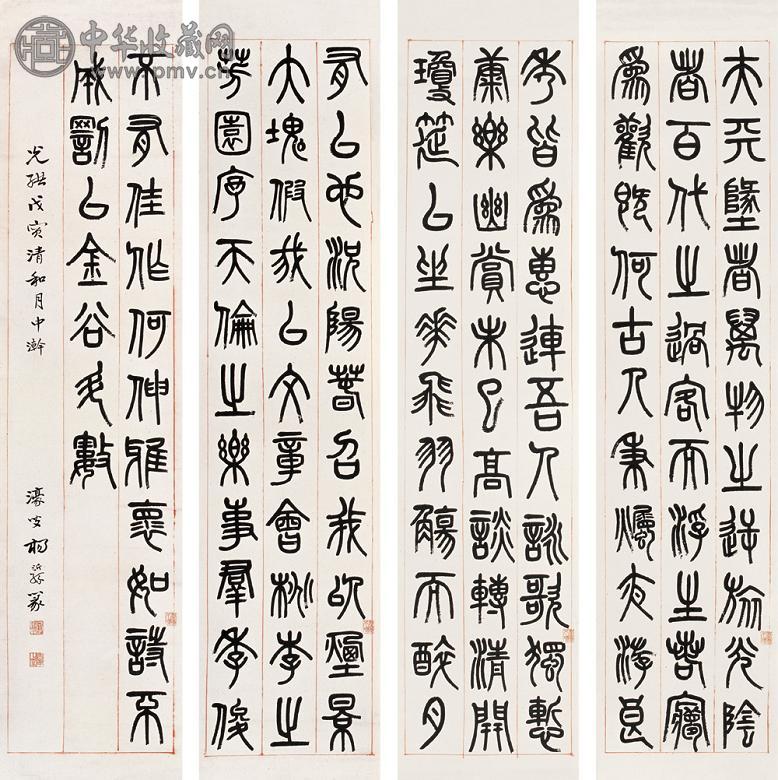 夫天墬者萬物之逆旅光陰
者百代之過客而浮生若㝱
為歡幾何古人秉燭夜游良
秀皆為惠連吾人詠歌獨慙
康樂幽賞未已高談轉清開
瓊筵以坐華飛羽觴而醉月
有以也況陽春召我以煙景
大塊假我以文章會桃李之
芳園序天倫之樂事羣季俊
不有佳作何伸雅懷如詩不
成罰以金谷多數
光緒戊寅清和月中澣
濠叟楊沂孫篆
中华收藏网
www.pmv.cn